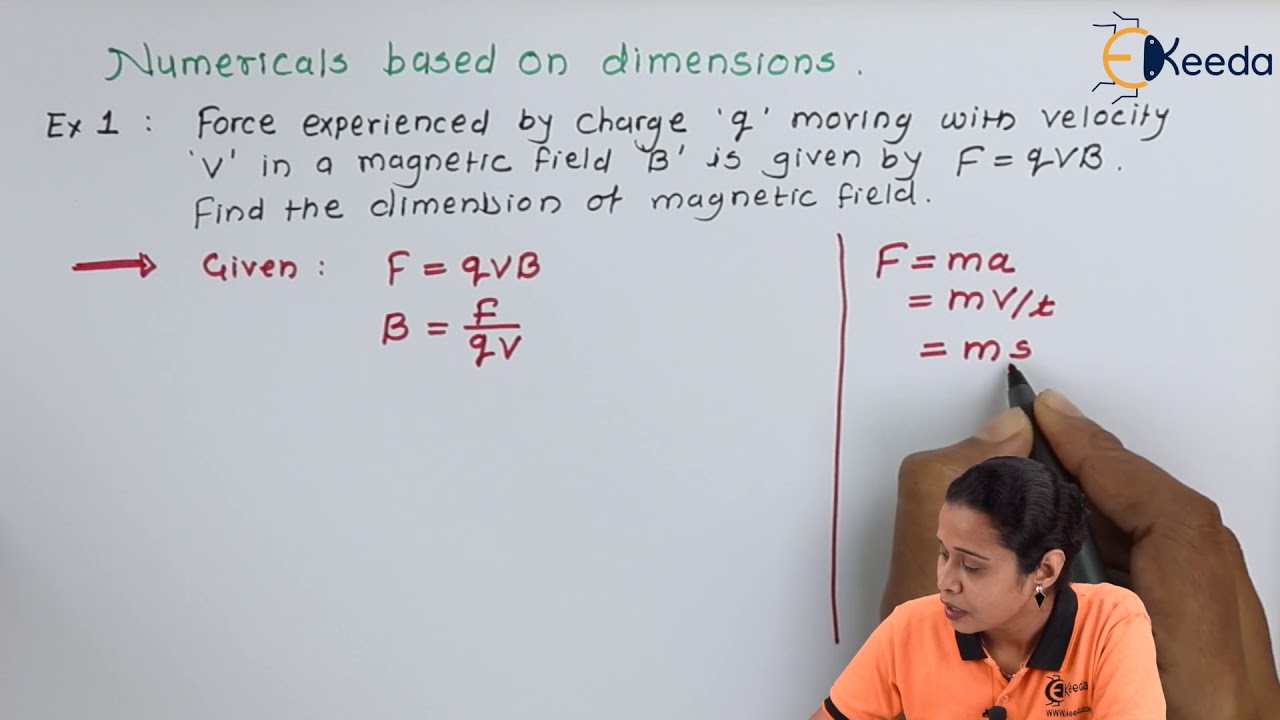 Numericals based on dimensions.
EKeeda
Ex 1 : Force experienced by charge 'q' moving with velocity
'v' in a magnetic field 'B' is given by F = qVB.
Find the dimension of magnetic field.
Given : F = qVB
B = F/qV
F = ma
= mV/t
= ms
EKeeda